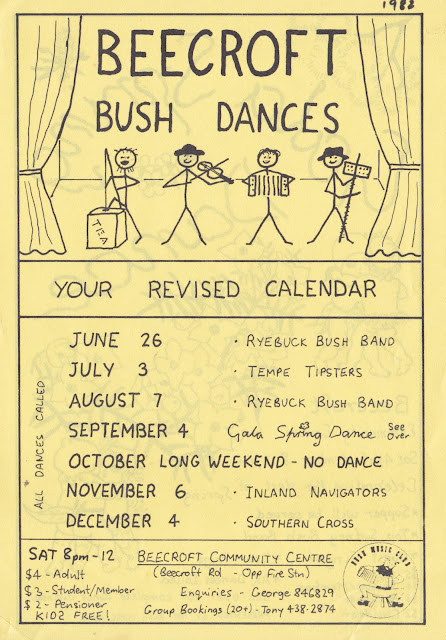 1982
BEECROFT
BUSH DANCES
TEA
YOUR REVISED CALENDAR
ALL DANCES CALLED
JUNE 26 · RYEBUCK BUSH BAND
JULY 3 · TEMPE TIPSTERS
AUGUST 7 · RYEBUCK BUSH BAND
SEPTEMBER 4 Gala Spring Dance See Over
OCTOBER LONG WEEKEND - NO DANCE
NOVEMBER 6 · INLAND NAVIGATORS
DECEMBER 4 · SOUTHERN CROSS
SAT 8pm - 12
$4 - Adult
$3 - Student/Member
$2 - Pensioner
KIDZ FREE!
BEECROFT COMMUNITY CENTRE
(Beecroft Rd - Opp Fire Stn)
Enquiries - George 846829
Group Bookings (20+) - Tony 438-2874
BUSH MUSIC CLUB